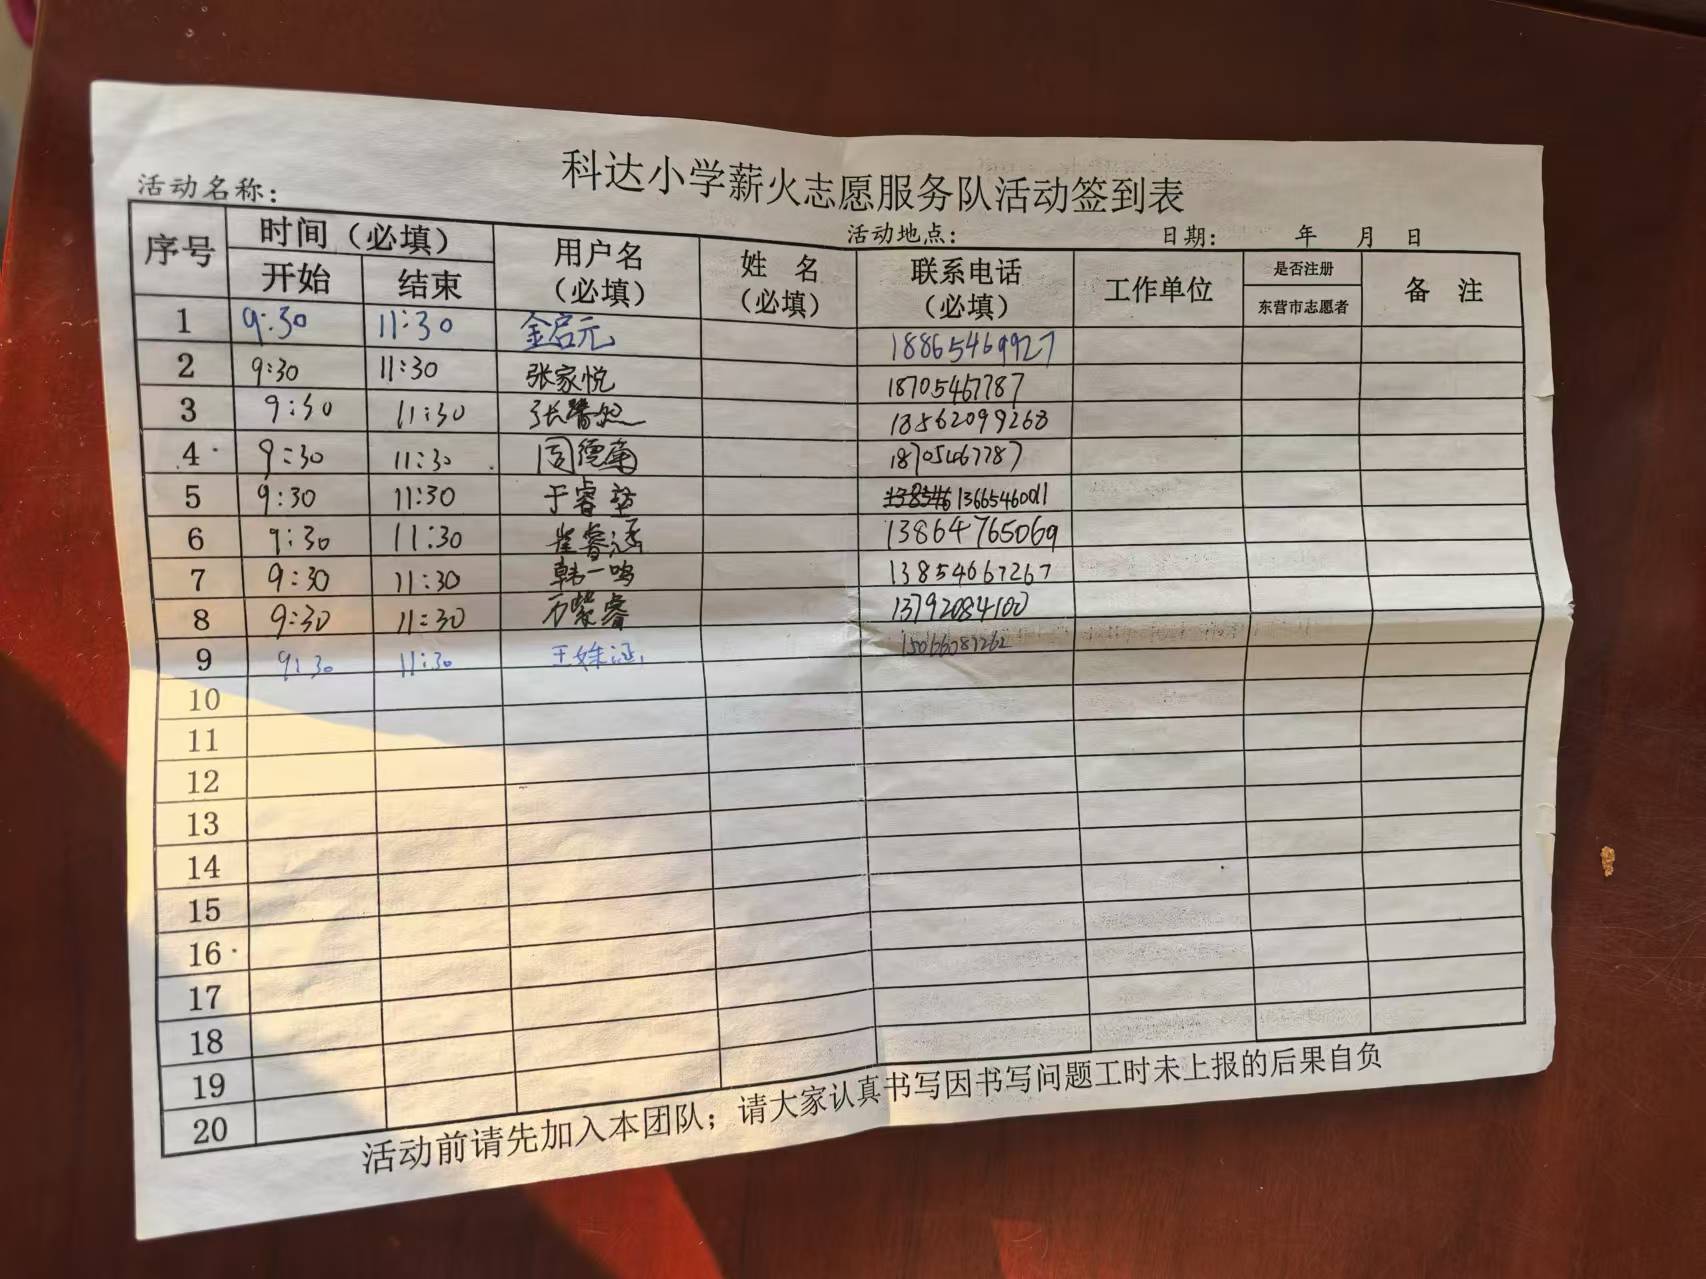 科达小学薪火志愿服务队活动签到表
活动名称： 活动地点： 日期： 年 月 日
序号 时间（必填） 用户名（必填） 姓 名（必填） 联系电话（必填） 工作单位 是否注册 东营市志愿者 备 注
开始 结束
1 9:30 11:30 金启元 18865469927
2 9:30 11:30 张家悦 18705467787
3 9:30 11:30 张馨 18562099268
4 9:30 11:30 周德 18705467787
5 9:30 11:30 于睿 13665460011
6 9:30 11:30 崔睿涵 13864765069
7 9:30 11:30 韩一鸣 13854667267
8 9:30 11:30 万紫睿 13792084100
9 9:30 11:30 王姝涵 15066087262
10
11
12
13
14
15
16
17
18
19
20
活动前请先加入本团队；请大家认真书写因书写问题工时未上报的后果自负